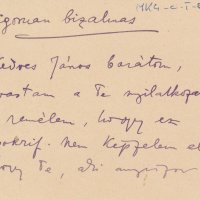 MK4-c-I-
gorúan bizalmas
Kedves János barátom,
vastam a Te nyilatkoza
remélem, hogy ez
pokrif. Nem képzelem el
hogy Te, aki annyiszor